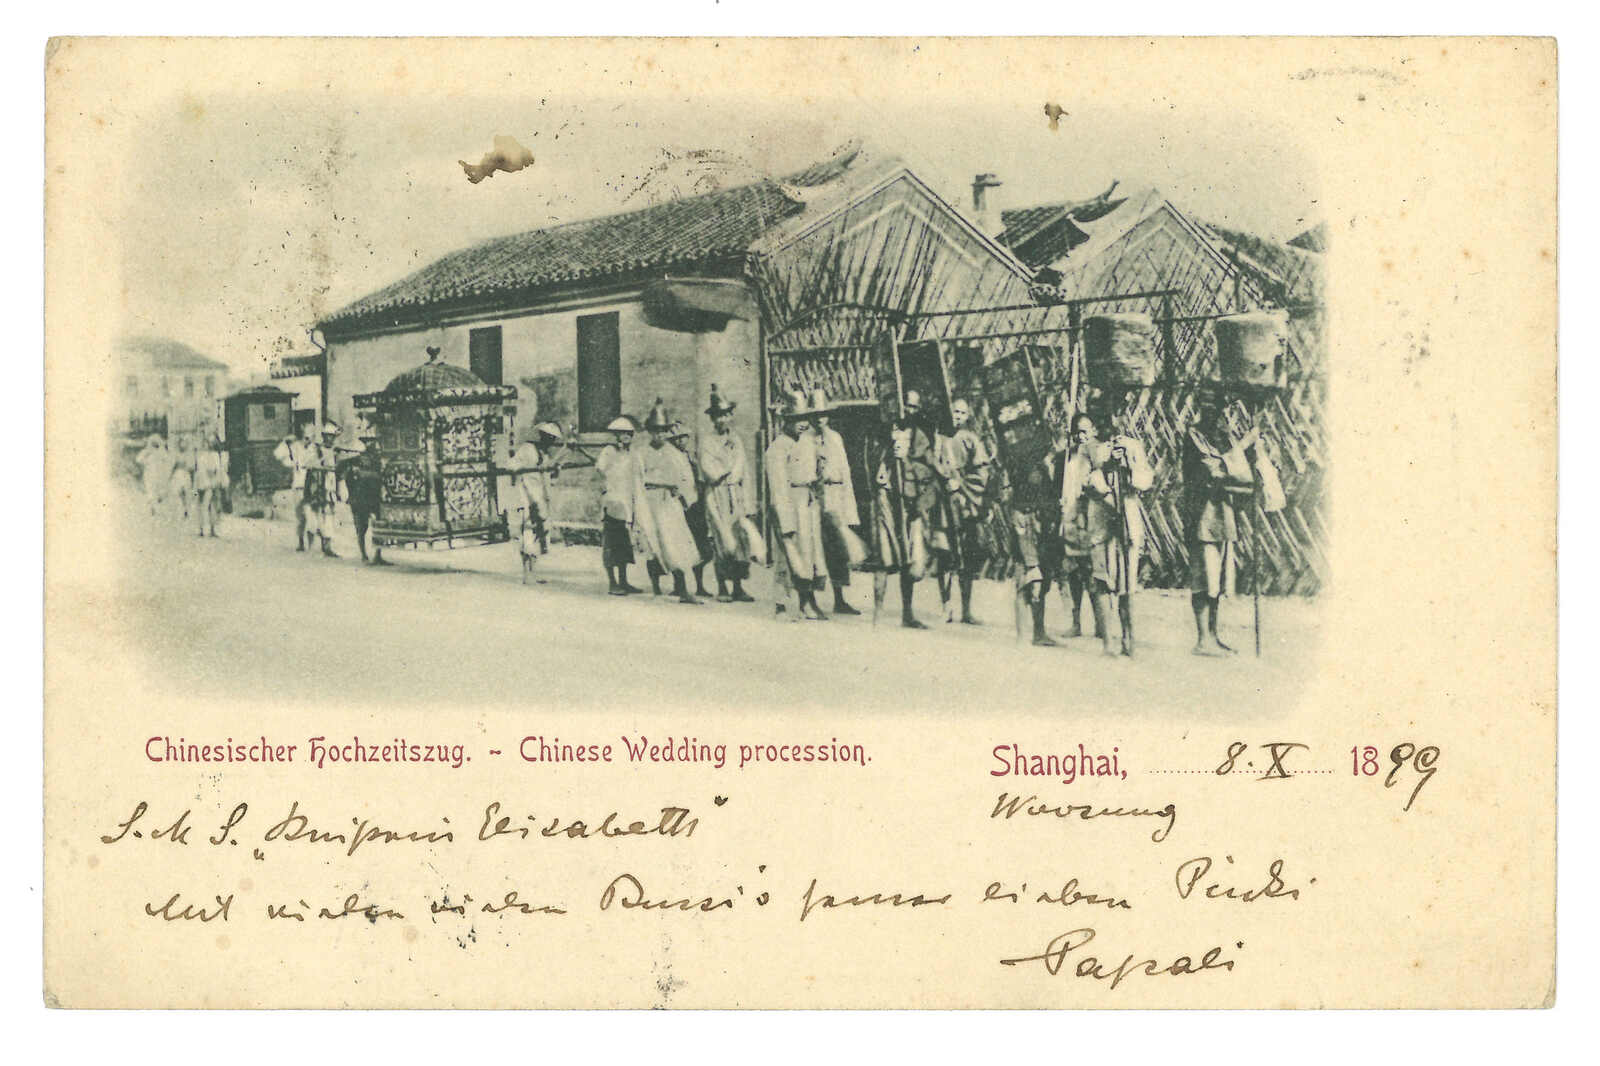 Chinesischer Hochzeitszug. - Chinese Wedding procession.
Shanghai, 8. X 1899
Woosung
S. M. S. „Kaiserin Elisabeth“
Mit vielen vielen Bussi's seiner lieben Pinki
Papali